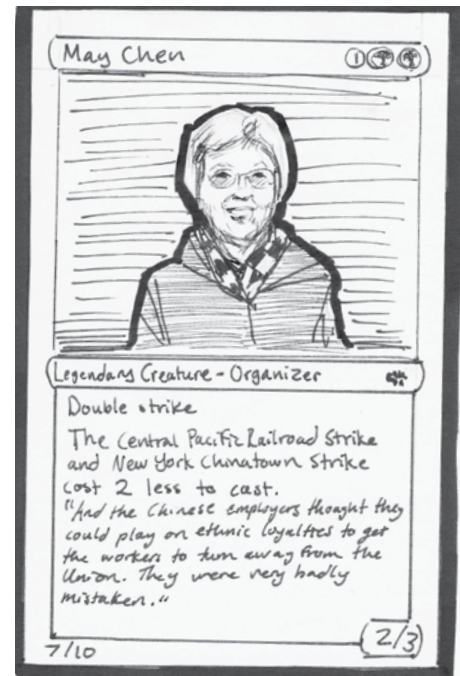 May Chen
1
Legendary Creature - Organizer
Double strike
The Central Pacific Railroad Strike
and New York Chinatown Strike
cost 2 less to cast.
"And the Chinese employers thought they
could play on ethnic loyalties to get
the workers to turn away from the
Union. They were very badly
mistaken."
2/3
7/10